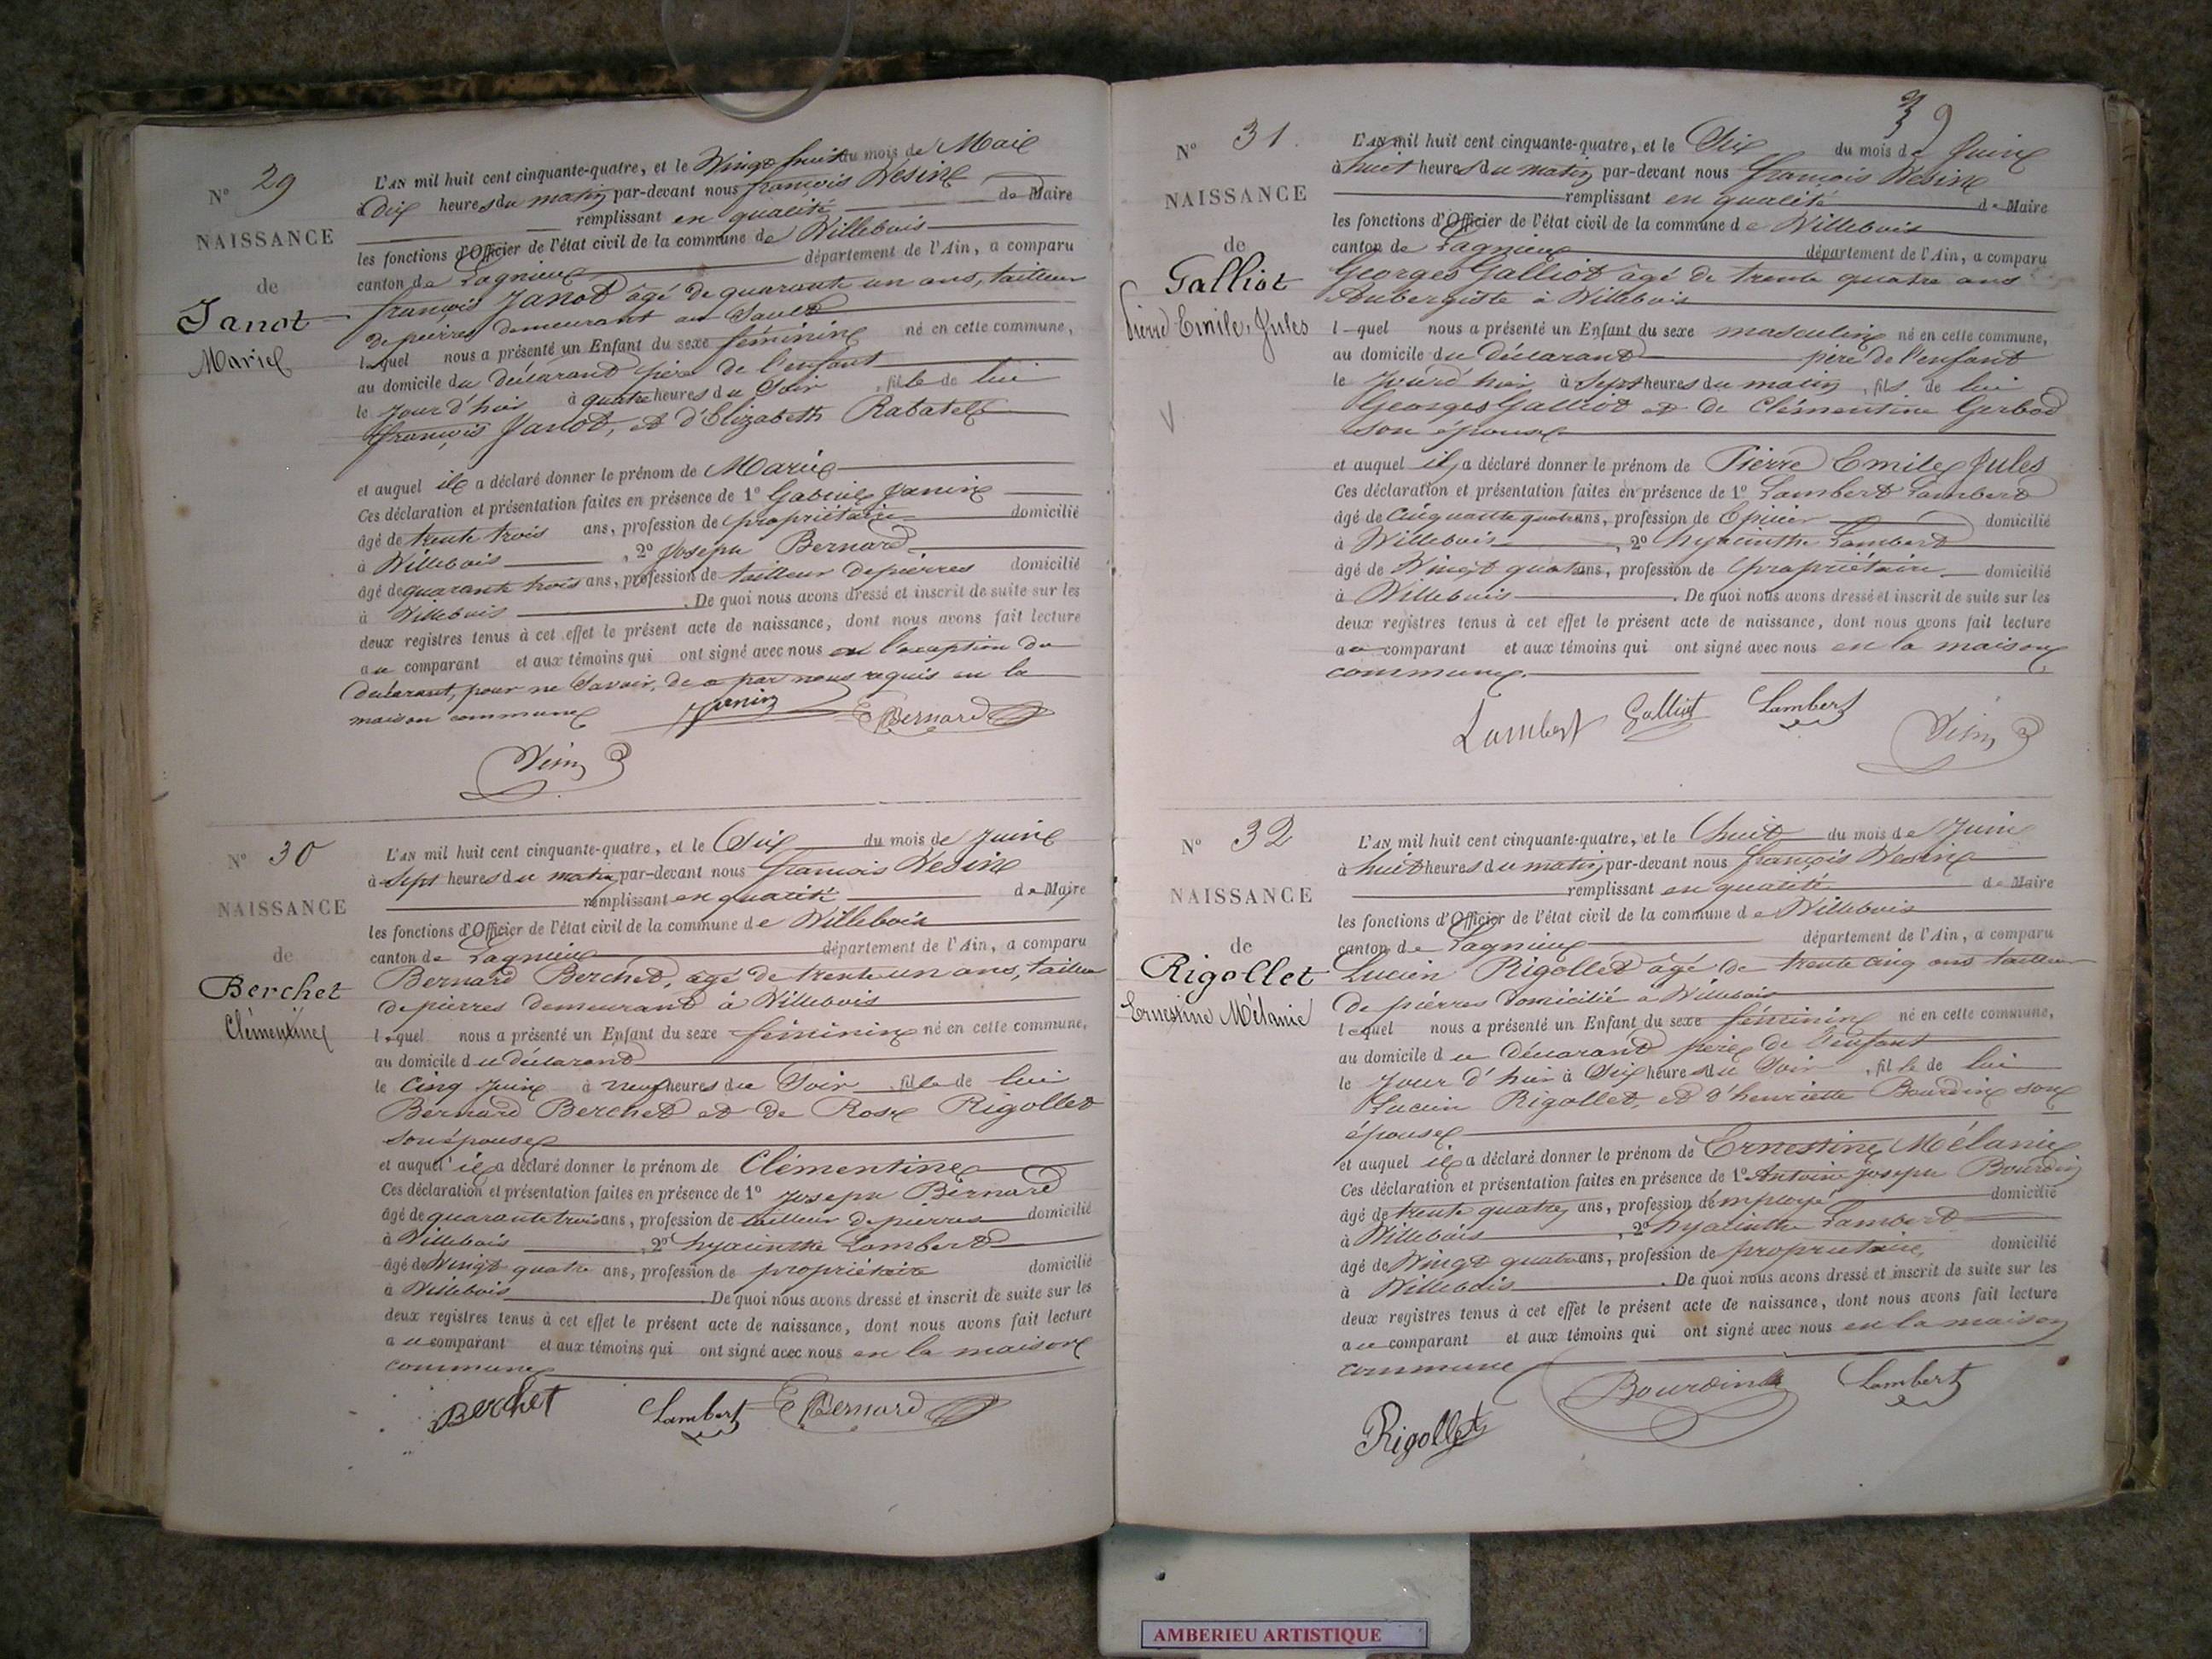 N° 29
NAISSANCE
de
Janot
Marie
L'AN mil huit cent cinquante-quatre, et le Vingt huit du mois de Mai
à dix heures du matin par-devant nous françois Vesin
remplissant en qualité de Maire
les fonctions d'Officier de l'état civil de la commune de Villebois
canton de Lagnieu département de l'Ain, a comparu
françois Janot âgé de quarante un ans, tailleur
de pierres demeurant au Sault
lequel nous a présenté un Enfant du sexe féminin né en cette commune,
au domicile du déclarant père de l'enfant
le jour d'hier à quatre heures du Soir, fille de lui
françois Janot, et d'Elizabeth Rabatel
et auquel il a déclaré donner le prénom de Marie
Ces déclaration et présentation faites en présence de 1° Gabriel Janin
âgé de trente trois ans, profession de propriétaire domicilié
à Villebois, 2° Joseph Bernard
âgé de quarante trois ans, profession de tailleur de pierres domicilié
à Villebois. De quoi nous avons dressé et inscrit de suite sur les
deux registres tenus à cet effet le présent acte de naissance, dont nous avons fait lecture
au comparant et aux témoins qui ont signé avec nous à l'exception du
déclarant, pour ne Savoir, de ce par nous requis en la
maison commune
Janin Bernard
Vesin
N° 30
NAISSANCE
de
Berchet
Clémentine
L'AN mil huit cent cinquante-quatre, et le Six du mois de Juin
à Sept heures du matin par-devant nous françois Vesin
remplissant en qualité de Maire
les fonctions d'Officier de l'état civil de la commune de Villebois
canton de Lagnieu département de l'Ain, a comparu
Bernard Berchet, âgé de trente un ans, tailleur
de pierres demeurant à Villebois
lequel nous a présenté un Enfant du sexe féminin né en cette commune,
au domicile du déclarant
le cinq Juin à neuf heures du Soir, fille de lui
Bernard Berchet et de Rose Rigollet
son épouse
et auquel il a déclaré donner le prénom de Clémentine
Ces déclaration et présentation faites en présence de 1° Joseph Bernard
âgé de quarante trois ans, profession de tailleur de pierres domicilié
à Villebois, 2° hyacinthe Lambert
âgé de Vingt quatre ans, profession de propriétaire domicilié
à Villebois. De quoi nous avons dressé et inscrit de suite sur les
deux registres tenus à cet effet le présent acte de naissance, dont nous avons fait lecture
au comparant et aux témoins qui ont signé avec nous en la maison
commune
Berchet Lambert Bernard
39
N° 31.
NAISSANCE
de
Galliot
Pierre Emile, Jules
L'AN mil huit cent cinquante-quatre, et le Six du mois de Juin
à huit heures du matin par-devant nous françois Vesin
remplissant en qualité de Maire
les fonctions d'Officier de l'état civil de la commune de Villebois
canton de Lagnieu département de l'Ain, a comparu
Georges Galliot âgé de trente quatre ans
Aubergiste à Villebois
lequel nous a présenté un Enfant du sexe masculin né en cette commune,
au domicile du déclarant père de l'enfant
le jour d'hier à Sept heures du matin, fils de lui
Georges Galliot et de Clémentine Gerbod
son épouse
et auquel il a déclaré donner le prénom de Pierre Emile Jules
Ces déclaration et présentation faites en présence de 1° Lambert Lambert
âgé de Cinquante quatre ans, profession de Epicier domicilié
à Villebois, 2° hyacinthe Lambert
âgé de Vingt quatre ans, profession de propriétaire domicilié
à Villebois. De quoi nous avons dressé et inscrit de suite sur les
deux registres tenus à cet effet le présent acte de naissance, dont nous avons fait lecture
au comparant et aux témoins qui ont signé avec nous en la maison
commune.
Lambert Galliot Lambert
Vesin
N° 32
NAISSANCE
de
Rigollet
Ernestine Mélanie
L'AN mil huit cent cinquante-quatre, et le huit du mois de Juin
à huit heures du matin par-devant nous françois Vesin
remplissant en qualité de Maire
les fonctions d'Officier de l'état civil de la commune de Villebois
canton de Lagnieu département de l'Ain, a comparu
Lucien Rigollet âgé de trente cinq ans tailleur
de pierres domicilié à Villebois
lequel nous a présenté un Enfant du sexe féminin né en cette commune,
au domicile du déclarant père de l'enfant
le Jour d'hier à Six heures du Soir, fille de lui
Lucien Rigollet, et d'henriette Bourdin son
épouse
et auquel il a déclaré donner le prénom de Ernestine Mélanie
Ces déclaration et présentation faites en présence de 1° Antoine Joseph Bourdin
âgé de trente quatre ans, profession d'employé domicilié
à Villebois, 2° hyacinthe Lambert
âgé de Vingt quatre ans, profession de propriétaire, domicilié
à Villebois. De quoi nous avons dressé et inscrit de suite sur les
deux registres tenus à cet effet le présent acte de naissance, dont nous avons fait lecture
au comparant et aux témoins qui ont signé avec nous en la maison
commune
Bourdin Lambert
Rigollet
AMBERIEU ARTISTIQUE